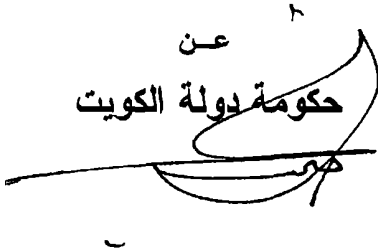 عن
حكومة دولة الكويت